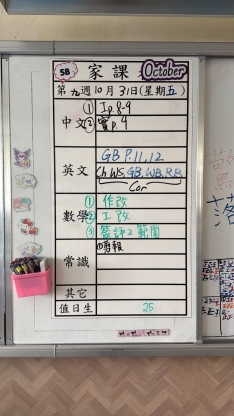 5B 家課 October
第九週10月31日(星期五)
中文 ① 工p.8-9
② p.4
英文 GB P.11,12
Ch WS, GB, WB, RB
Cor
數學 ① 作改
② 工改
③ 範圍
常識 ①剪報
其它
值日生 25